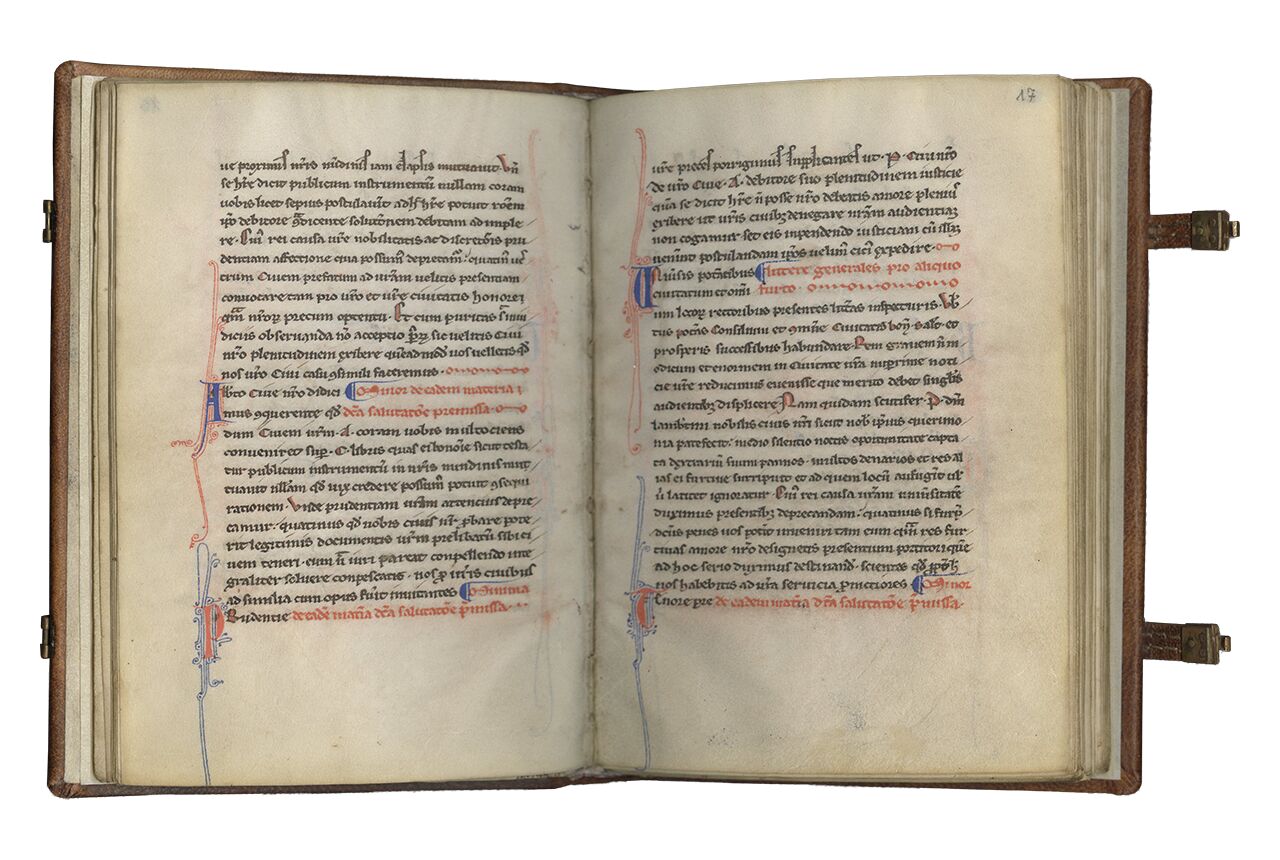 ue proximis nr̄is nūdinis iam elapsis mutuauit. Vn̄
se hr̄e dicit publicum instrumentū nullam coram
uobis licet sepius postulauerit adhuc hr̄e potuit
debitore soluēnem debitam ad imple
re. Cui rei causa ur̄e nobilitatis ac discretōis pru
dentiam affectione qua possum̄ deprecam̄. quatin̄
Ciuem prefatum ad ur̄am uelitis presentiam
conuocare tam pro ur̄o et ur̄e ciuitatis honore
nr̄or̄ precum optentu. Et cum puritas
dicus obseruanda nō acceptio sic uelitis Ciui
nr̄o plenitudinem exibere quēadmod̄ uos uelletis qd̄
nos ur̄o Ciui casu 9simili faceremus.
Ciue nr̄o didici Minor de eadem materia
mus 9querente qd̄ dc̄a salutatōe premissa
dum Ciuem ur̄m. A. coram uobis multociens
conuenerit sup̄. C. libris quas ei bononie sicut testa
tur publicum instrumentū in nr̄is nundinis mut
tuauit nullam qd̄ uix credere possum̄ potuit 9sequi
rationem. Vnde prudentiam ur̄am attencius depre
camur. quatinus qd̄ nobis ciuis nr̄ pbare pote
rit legitimis documentis ur̄m prelibatū sibi ci
uem teneri. eum n̄ iuri pareat conpellendo inte
graliter soluere conpescatis. nos p ur̄is ciuibus
ad similia cum opus fuīt inuitantes Minima
Rudentie de eadē mat̄ia dc̄a salutatōe p̄missa
17
ur̄e preces porrigimus supplicantes ut. P. Ciui nr̄o
de ur̄o Ciue. A. debitore suo plenitudinem iusticie
qua se dicit hr̄e n̄ posse nr̄o debeatis amore plenius
exibere ut ur̄is ciuib; denegare nr̄am audientiam
non cogamur set eis inpendendo iusticiam cū illam
uenerint postulandam ipsos uelim̄ cici expedire.
niusis potestatibus Littere generales pro aliquo
ciuitatum et om̄i furto.
um locor̄ rectoribus presentes litt̄as inspecturis.
tus potestas Consilium et 9mune Ciuitatis bon̄. salt̄ et
prosperis successibus habundare. Rem grauem n̄ m
odicum et enormem in Ciuitate nr̄a nup̄rime noti
cie ur̄e reducimus euenisse que merito debet singulis
audientib; displicere. Nam quidam scutifer. P. dn̄i
lambtini nobilis ciuis nr̄i sicut nob̄ ipsius querimo
nia patefecit. medio silentio noctis oportunitate capta
ta dextrarium suum pannos. multos denarios et res al
ias ei furtiue surripuit et ad quem locū aufugīt uł
u̇ latitet ignoratur. Cui rei causa ur̄am uniuersitatē
duximus presentib; deprecandam. quatinus si fur p̄
dc̄us penes uos potīt inueniri tam eum quam res fur
tiuas amore nr̄o designetis presentium portitori que
ad hoc serio duximus destinand̄. scientes qd̄
nos habebitis ad ur̄a seruicia promctiores Minor
Enore pre de eadem mat̄ia dc̄a salutatōe p̄missa.